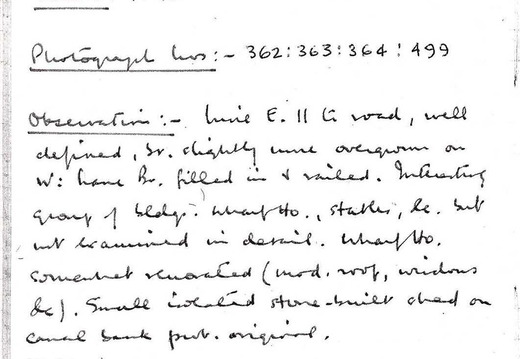 Photograph nos:- 362:363:364:499
Observation:- Line E. II to road, well
defined, br. slightly more overgrown on
W: Lane Br. filled in & railed. Interesting
group of bldgs. Wharf Ho., stables, &c. but
not examined in detail. Wharf Ho.
somewhat renovated (mod. roof, windows
&c). Small isolated stone-built shed on
canal bank prob. original.